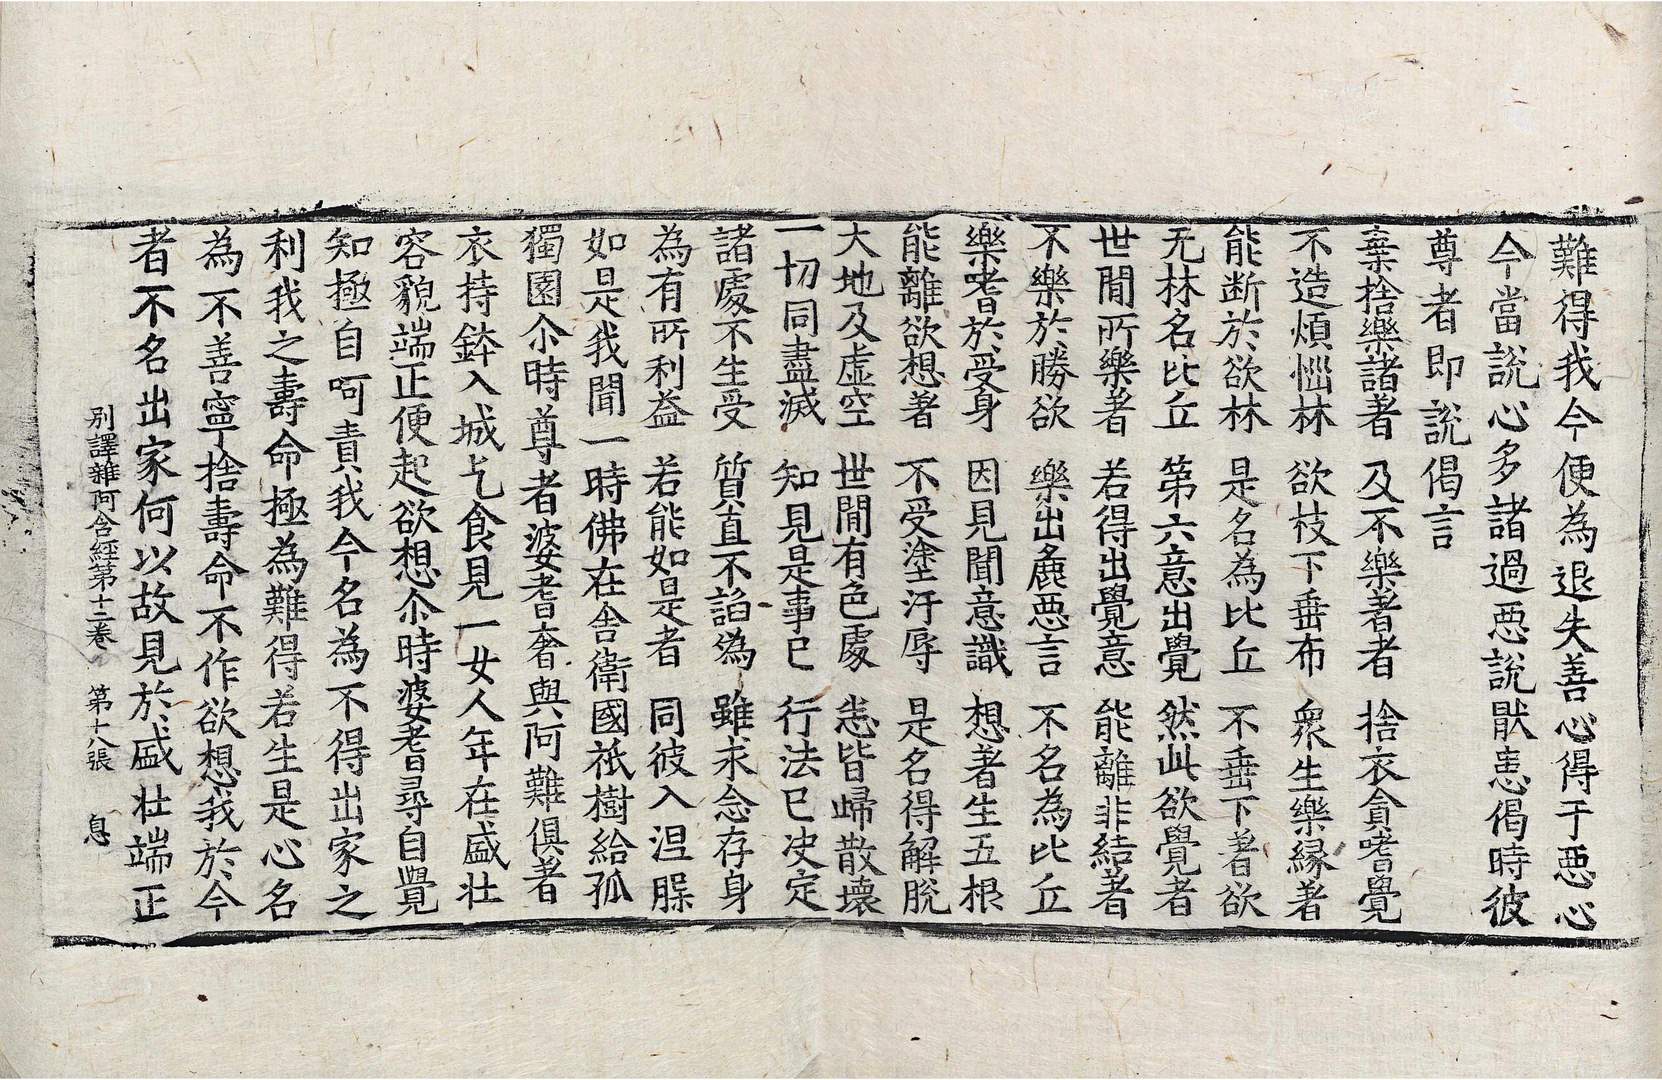 難得我今便爲退失善心得于惡心
今當說心多諸過惡說猒患偈時彼
尊者即說偈言
棄捨樂諸著 及不樂著者 捨衣貪嗜覺
不造煩惱林 欲枝下垂布 衆生樂緣著
能斷於欲林 是名爲比丘 不垂下著欲
无林名比丘 第六意出覺 然此欲覺者
世間所樂著 若得出覺意 能離非結著
不樂於勝欲 樂出麁惡言 不名爲比丘
樂嗜於受身 因見聞意識 想著生五根
能離欲想著 不受塗汙辱 是名得解脫
大地及虛空 世間有色處 悉皆歸散壞
一切同盡滅 知見是事已 行法已決定
諸處不生受 質直不諂僞 雖求念存身
爲有所利益 若能如是者 同彼入涅槃
如是我聞一時佛在舍衛國祇樹給孤
獨園尒時尊者婆耆奢與阿難俱著
衣持鉢入城乞食見一女人年在盛壯
容貌端正便起欲想尒時婆耆尋自覺
知極自呵責我今名爲不得出家之
利我之壽命極爲難得若生是心名
爲不善寧捨壽命不作欲想我於今
者不名出家何以故見於盛壯端正
別譯雜阿含經第十二卷 第十八張 息